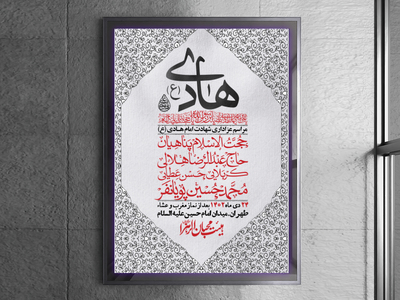 هادی (ع)
مراسم عزاداری شهادت امام هادی (ع)
حجت الاسلام پناهیان
حاج عبدالرضا هلالی
کربلایی حسن عطایی
محمدحسین پویانفر
۲۳ دی ماه ۱۴۰۲ بعد از نماز مغرب و عشاء
طهران، میدان امام حسین علیه السلام